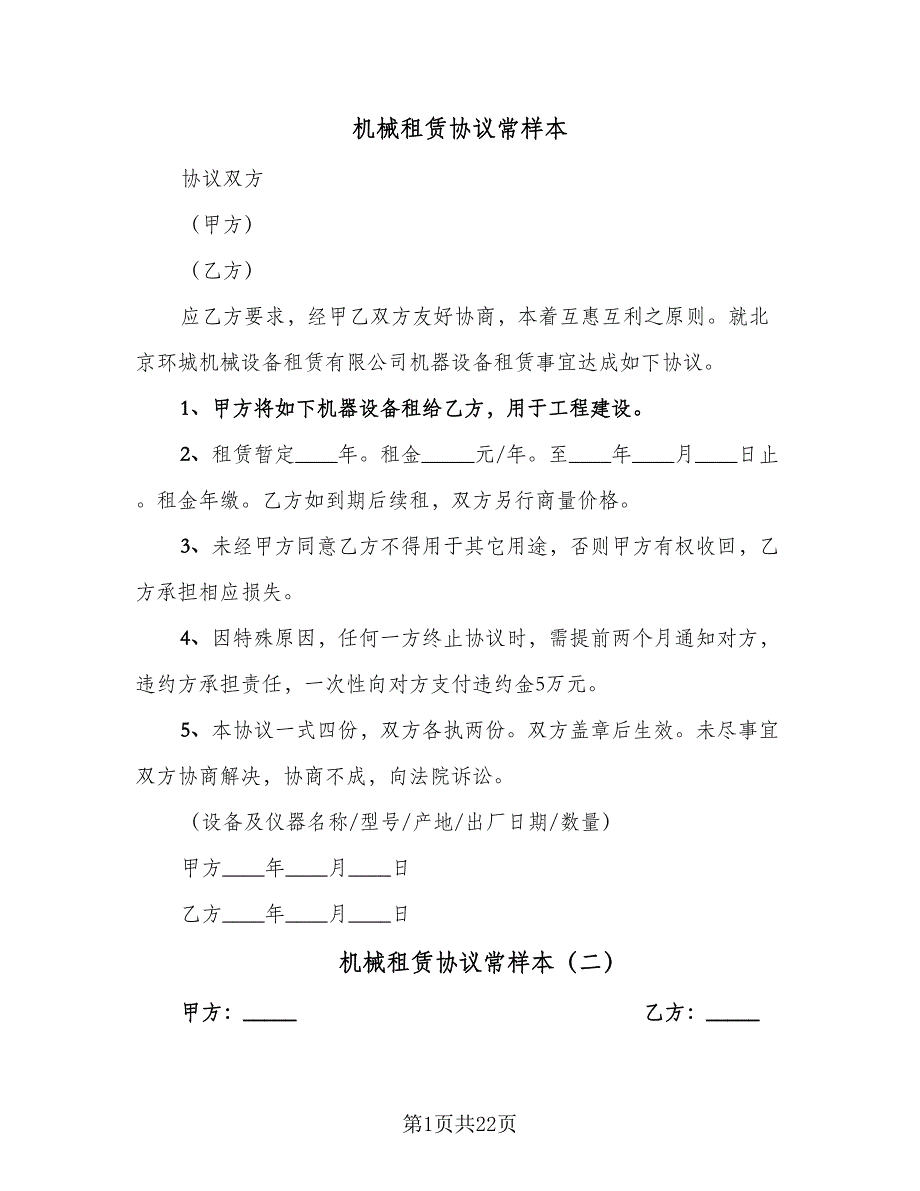 机械租赁协议常样本
协议双方
（甲方）
（乙方）
应乙方要求，经甲乙双方友好协商，本着互惠互利之原则。就北
京环城机械设备租赁有限公司机器设备租赁事宜达成如下协议。
1、甲方将如下机器设备租给乙方，用于工程建设。
2、租赁暂定____年。租金_____元/年。至____年____月____日止
。租金年缴。乙方如到期后续租，双方另行商量价格。
3、未经甲方同意乙方不得用于其它用途，否则甲方有权收回，乙
方承担相应损失。
4、因特殊原因，任何一方终止协议时，需提前两个月通知对方，
违约方承担责任，一次性向对方支付违约金5万元。
5、本协议一式四份，双方各执两份。双方盖章后生效。未尽事宜
双方协商解决，协商不成，向法院诉讼。
（设备及仪器名称/型号/产地/出厂日期/数量）
甲方____年____月____日
乙方____年____月____日
机械租赁协议常样本（二）
甲方：_____ 乙方：_____
第1页共22页